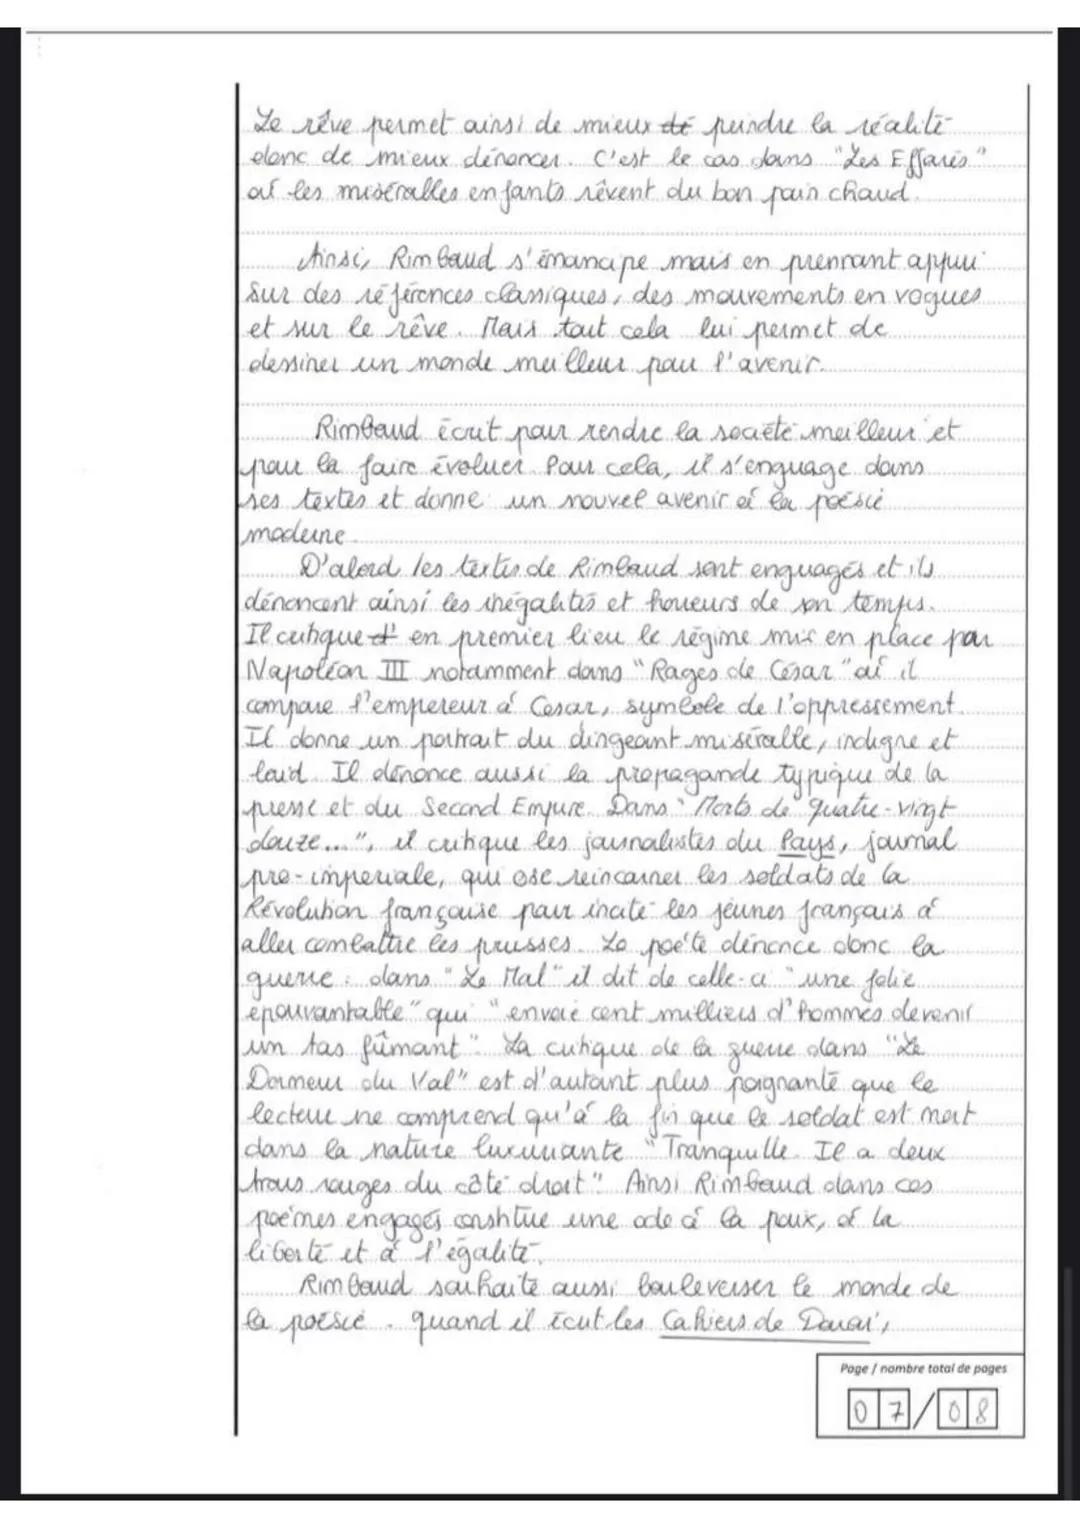 Le rêve permet ainsi de mieux dé peindre la réalité
donc de mieux dénoncer. C'est le cas dans "Les Effarés"
où les misérables enfants rêvent du bon pain chaud.
Ainsi, Rimbaud s'émancipe mais en prennant appui
sur des références classiques, des mouvements en vogues
et sur le rêve. Mais tout cela lui permet de
dessiner un monde meilleur pour l'avenir.
Rimbaud écrit pour rendre la société meilleur et
pour la faire évoluer. Pour cela, il s'enguage dans
ses textes et donne un nouvel avenir à la poésie
moderne.
D'abord les textes de Rimbaud sont enguagés et ils
dénoncent ainsi les inégalités et horreurs de son temps.
Il critique d' en premier lieu le régime mis en place par
Napoléon III notamment dans "Rages de César" où il
compare l'empereur à Cesar, symbole de l'oppressement.
Il donne un portrait du dirigeant misérable, indigne et
laid. Il dénonce aussi la propagande typique de la
presse et du Second Empire. Dans "Morts de quatre-vingt
douze...", il critique les journalistes du Pays, journal
pro-imperiale, qui ose reincarner les soldats de la
Révolution française pour incité les jeunes français à
aller combattre les prusses. Le poète dénonce donc la
guerre : dans "Le Mal" il dit de celle-ci "une folie
epouvantable" qui "envoie cent milliers d'hommes devenir
un tas fûmant". La critique de la guerre dans "Le
Dormeur du Val" est d'autant plus poignante que le
lecteur ne comprend qu'à la fin que le soldat est mort
dans la nature luxuriante "Tranquille. Il a deux
trous rouges du côté droit". Ainsi Rimbaud dans ces
poèmes engagés constitue une ode à la paix, à la
liberté et à l'égalité.
Rimbaud souhaite aussi bouleverser le monde de
la poésie. quand il écrit les Cahiers de Douai,
Page / nombre total de pages
07/08